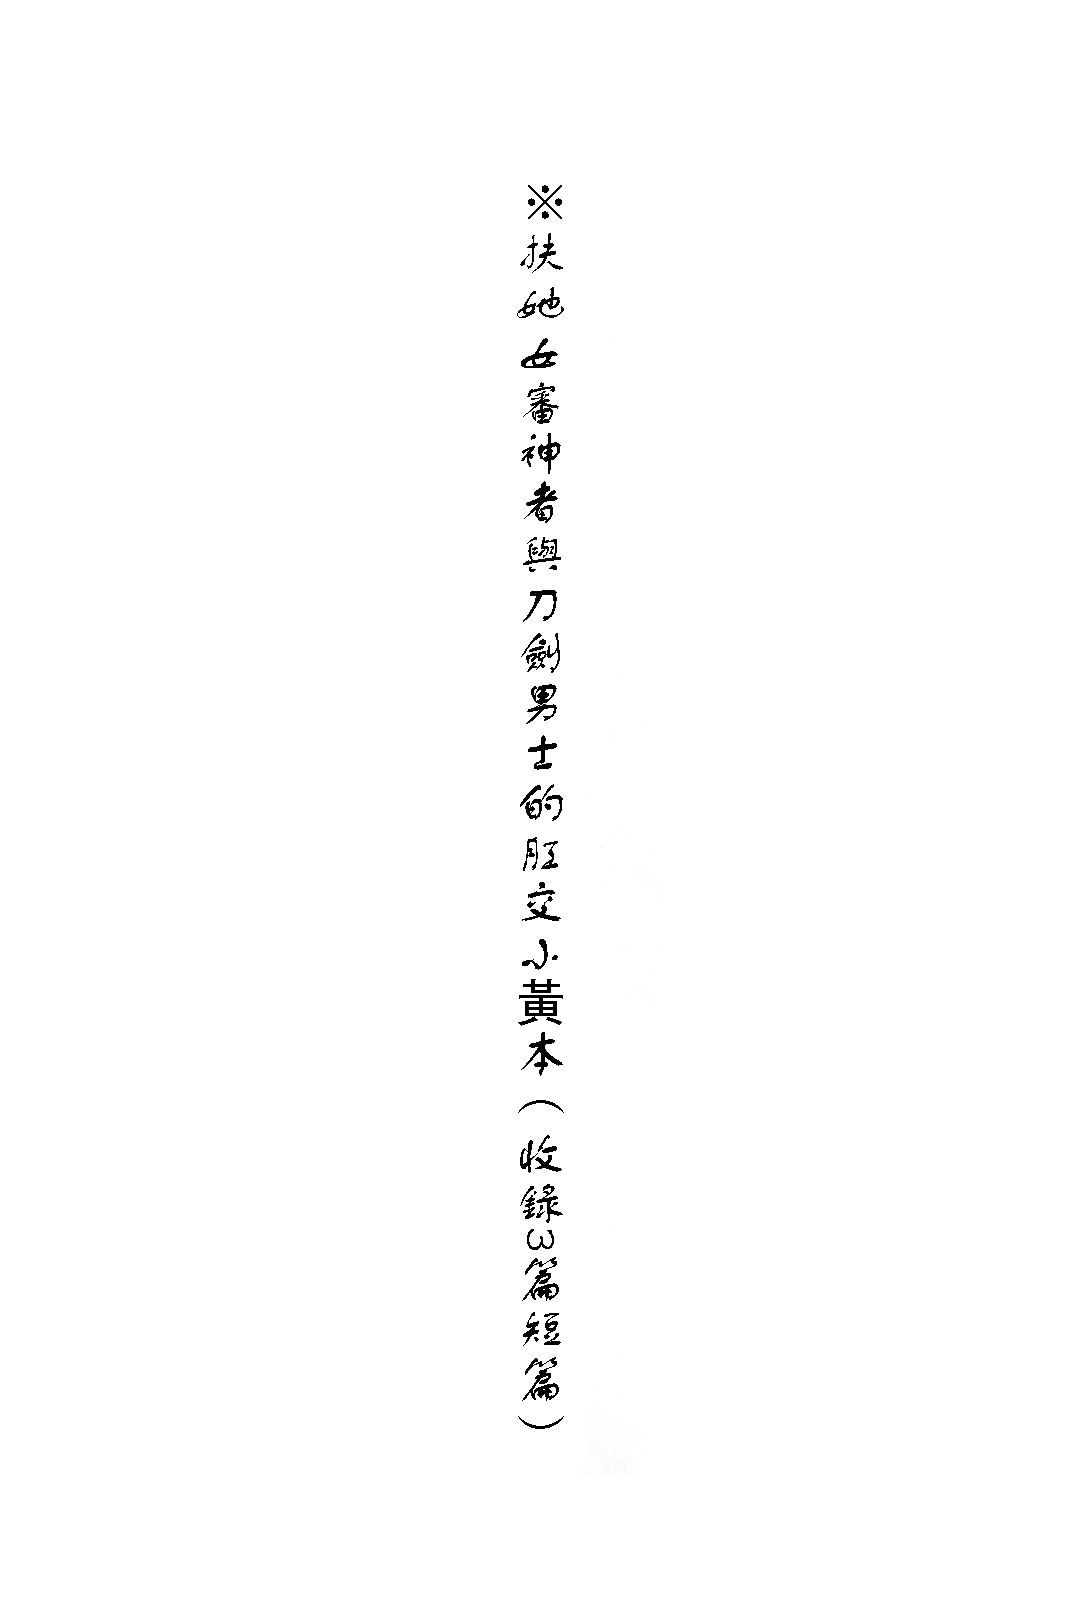 ※扶她女審神者與刀劍男士的肛交小黃本（收錄3篇短篇）